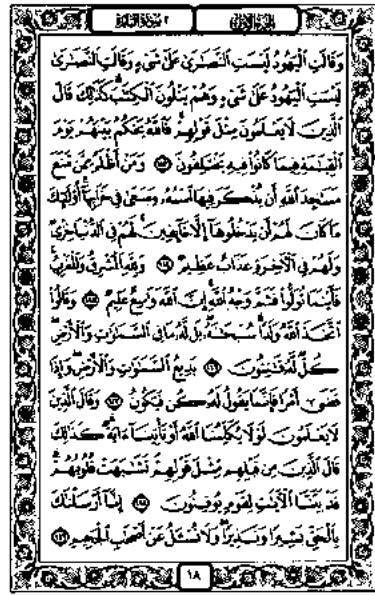 الجزء الأول ٢ سورة البقرة
وَقَالَتِ الْيَهُودُ لَيْسَتِ النَّصَارَىٰ عَلَىٰ شَيْءٍ وَقَالَتِ النَّصَارَىٰ
لَيْسَتِ الْيَهُودُ عَلَىٰ شَيْءٍ وَهُمْ يَتْلُونَ الْكِتَابَ كَذَٰلِكَ قَالَ
الَّذِينَ لَا يَعْلَمُونَ مِثْلَ قَوْلِهِمْ فَاللَّهُ يَحْكُمُ بَيْنَهُمْ يَوْمَ
الْقِيَامَةِ فِيمَا كَانُوا فِيهِ يَخْتَلِفُونَ ١١٣ وَمَنْ أَظْلَمُ مِمَّن مَّنَعَ
مَسَاجِدَ اللَّهِ أَن يُذْكَرَ فِيهَا اسْمُهُ وَسَعَىٰ فِي خَرَابِهَا أُولَٰئِكَ
مَا كَانَ لَهُمْ أَن يَدْخُلُوهَا إِلَّا خَائِفِينَ لَهُمْ فِي الدُّنْيَا خِزْيٌ
وَلَهُمْ فِي الْآخِرَةِ عَذَابٌ عَظِيمٌ ١١٤ وَلِلَّهِ الْمَشْرِقُ وَالْمَغْرِبُ
فَأَيْنَمَا تُوَلُّوا فَثَمَّ وَجْهُ اللَّهِ إِنَّ اللَّهَ وَاسِعٌ عَلِيمٌ ١١٥ وَقَالُوا
اتَّخَذَ اللَّهُ وَلَدًا سُبْحَانَهُ بَل لَّهُ مَا فِي السَّمَاوَاتِ وَالْأَرْضِ
كُلٌّ لَّهُ قَانِتُونَ ١١٦ بَدِيعُ السَّمَاوَاتِ وَالْأَرْضِ وَإِذَا
قَضَىٰ أَمْرًا فَإِنَّمَا يَقُولُ لَهُ كُن فَيَكُونُ ١١٧ وَقَالَ الَّذِينَ
لَا يَعْلَمُونَ لَوْلَا يُكَلِّمُنَا اللَّهُ أَوْ تَأْتِينَا آيَةٌ كَذَٰلِكَ
قَالَ الَّذِينَ مِن قَبْلِهِم مِّثْلَ قَوْلِهِمْ تَشَابَهَتْ قُلُوبُهُمْ
قَدْ بَيَّنَّا الْآيَاتِ لِقَوْمٍ يُوقِنُونَ ١١٨ إِنَّا أَرْسَلْنَاكَ
بِالْحَقِّ بَشِيرًا وَنَذِيرًا وَلَا تُسْأَلُ عَنْ أَصْحَابِ الْجَحِيمِ ١١٩
١٨